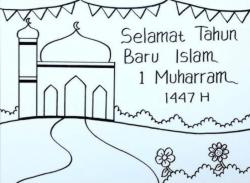 Selamat Tahun
Baru Islam
1 Muharram
1447 H